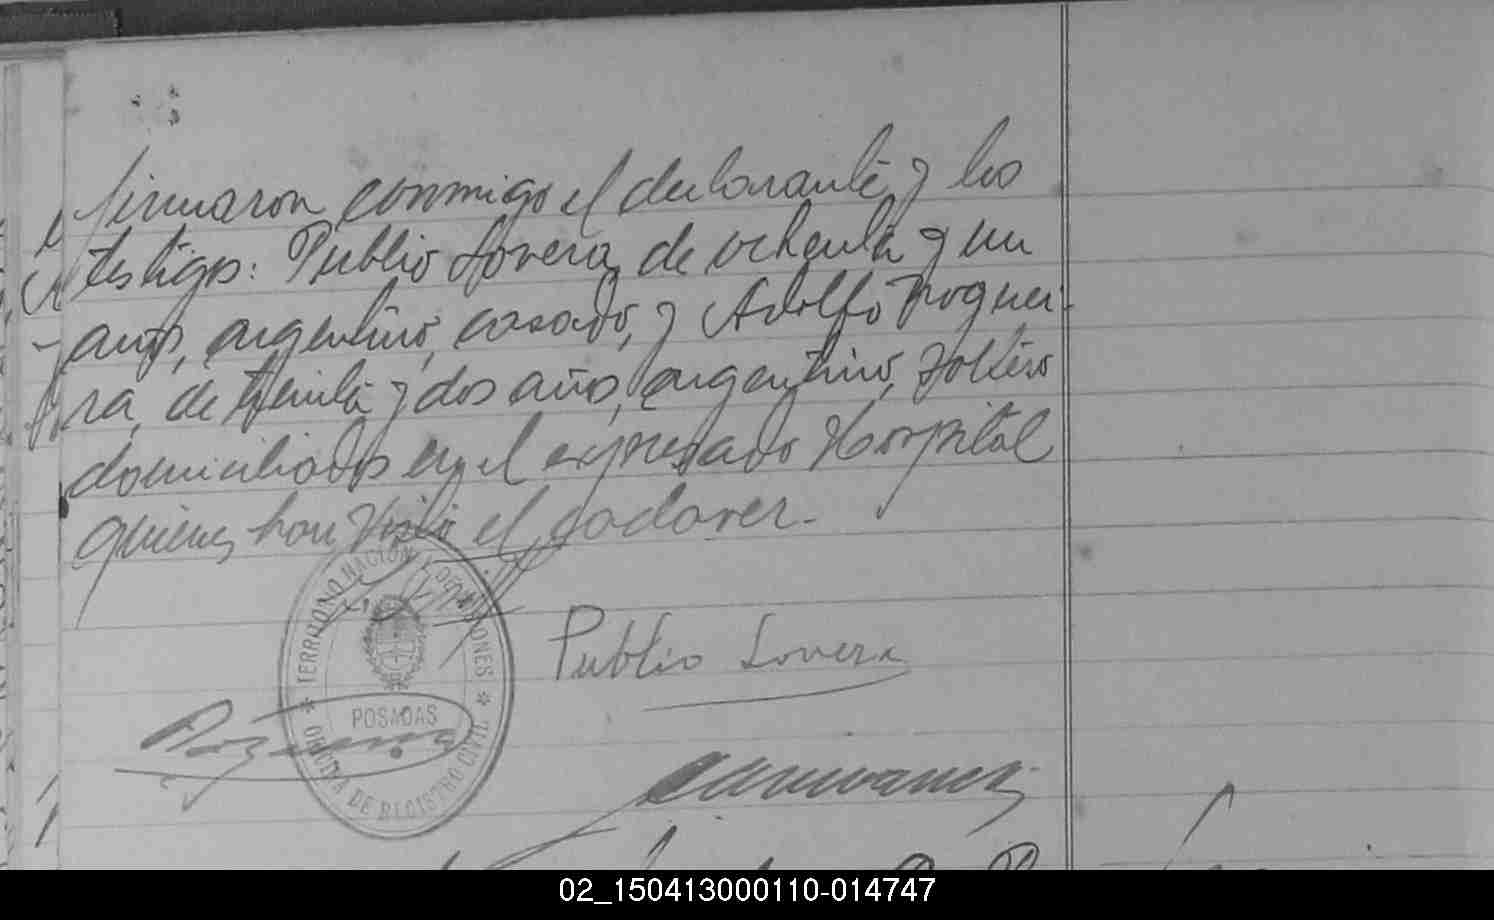 firmaron conmigo el declarante y los
testigos: Publio Lovera, de ochenta y un
años, argentino, casado, y Adolfo Noguei-
ra, de treinta y dos años, argentino, soltero
domiciliados en el expresado Hospital
quienes han visto el cadaver.-
TERRITORIO NACIONAL DE MISIONES
POSADAS
OFICINA DE REGISTRO CIVIL
Publio Lovera
02_150413000110-014747